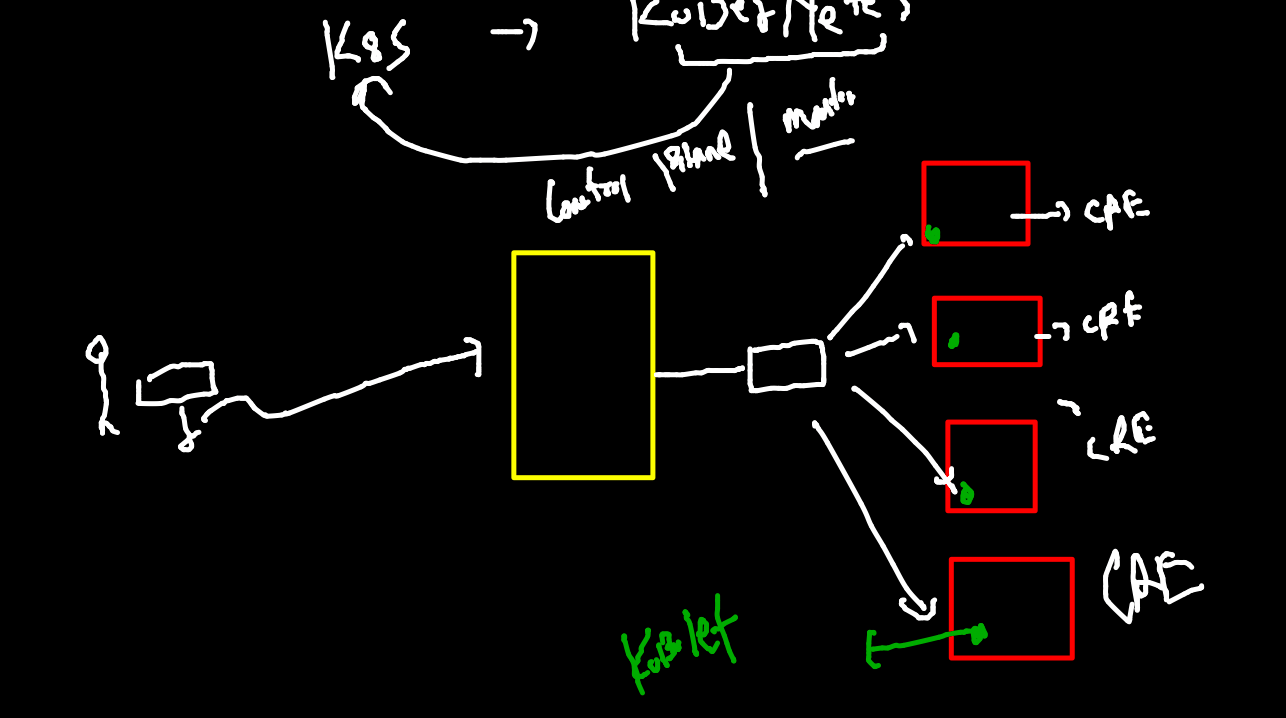 K8S → KuBerNetes
Control plane | master
CRE
CRE
CRE
CRE
KuBlet